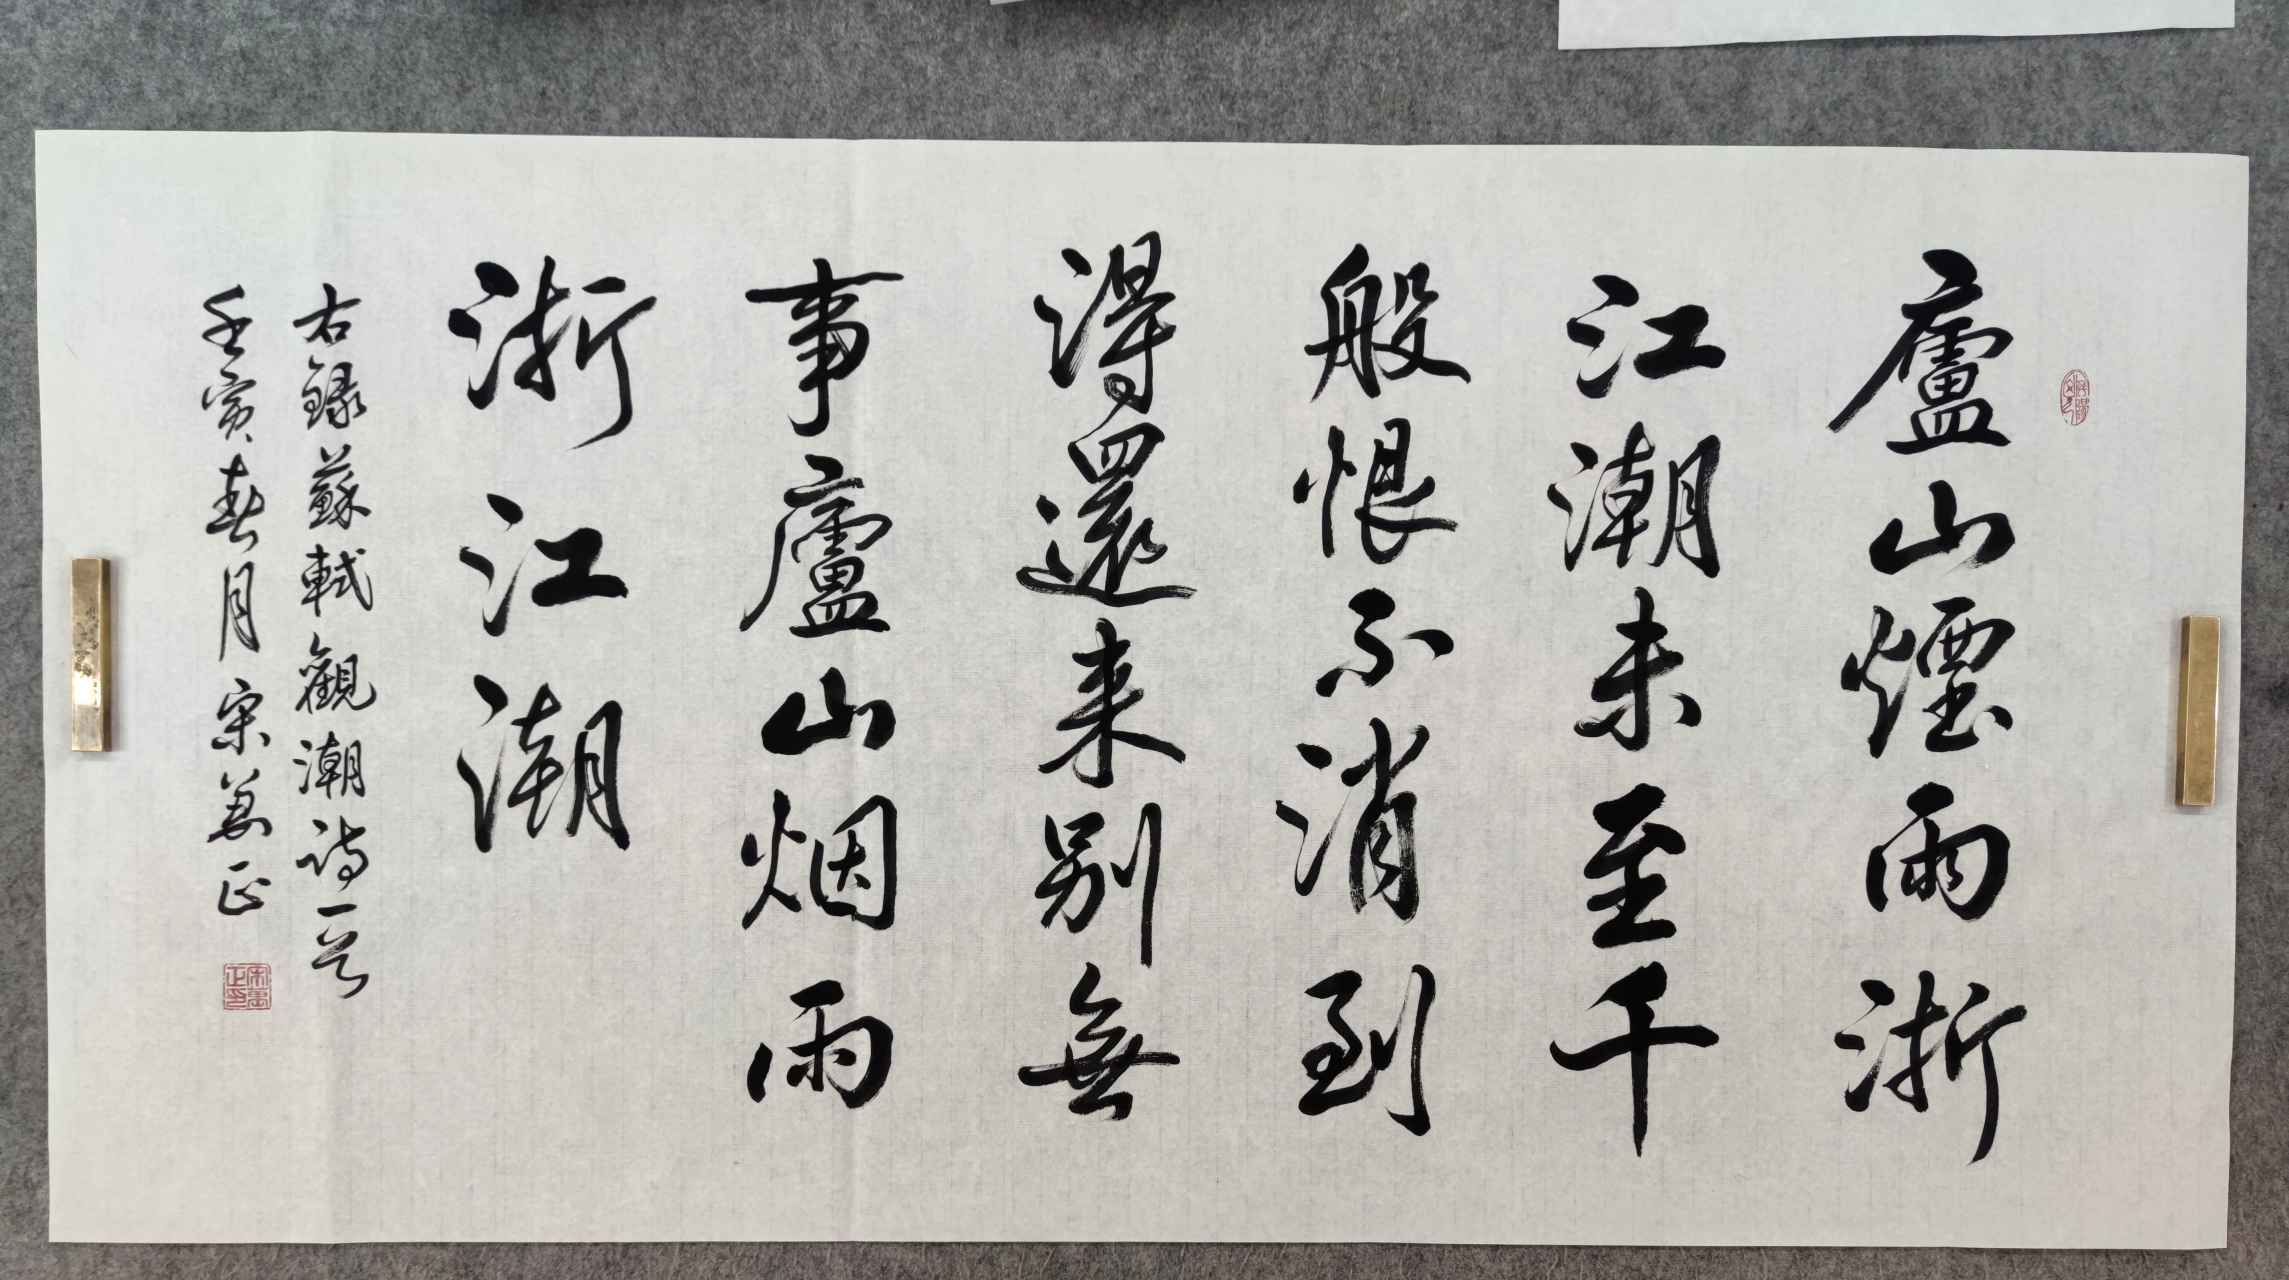 廬山煙雨浙
江潮未至千
般恨不消到
得還来別無
事廬山烟雨
浙江潮
右錄蘇軾觀潮詩一首
壬寅春月宋萬正